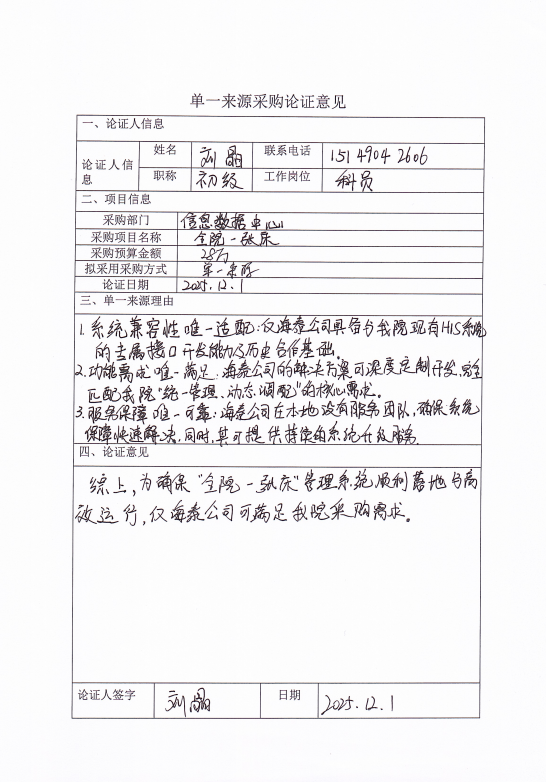 单一来源采购论证意见
一、论证人信息
论证人信息 姓名 刘晶 联系电话 15149042606
职称 初级 工作岗位 科员
二、项目信息
采购部门 信息数据中心
采购项目名称 全院一张床
采购预算金额 28万
拟采用采购方式 单一来源
论证日期 2025.12.1
三、单一来源理由
1.系统兼容性唯一适配:仅海泰公司具备与我院现有HIS系统
的专属接口开发能力及历史合作基础。
2.功能需求唯一满足:海泰公司的解决方案可深度定制开发,完全
匹配我院"统一管理、动态调配"的核心需求。
3.服务保障唯一可靠:海泰公司在本地设有服务团队,确保系统
保障快速解决,同时,其可提供持续的系统升级服务.
四、论证意见
综上,为确保"全院一张床"管理系统顺利落地与高
效运行,仅海泰公司可满足我院采购需求。
论证人签字 刘晶 日期 2025.12.1